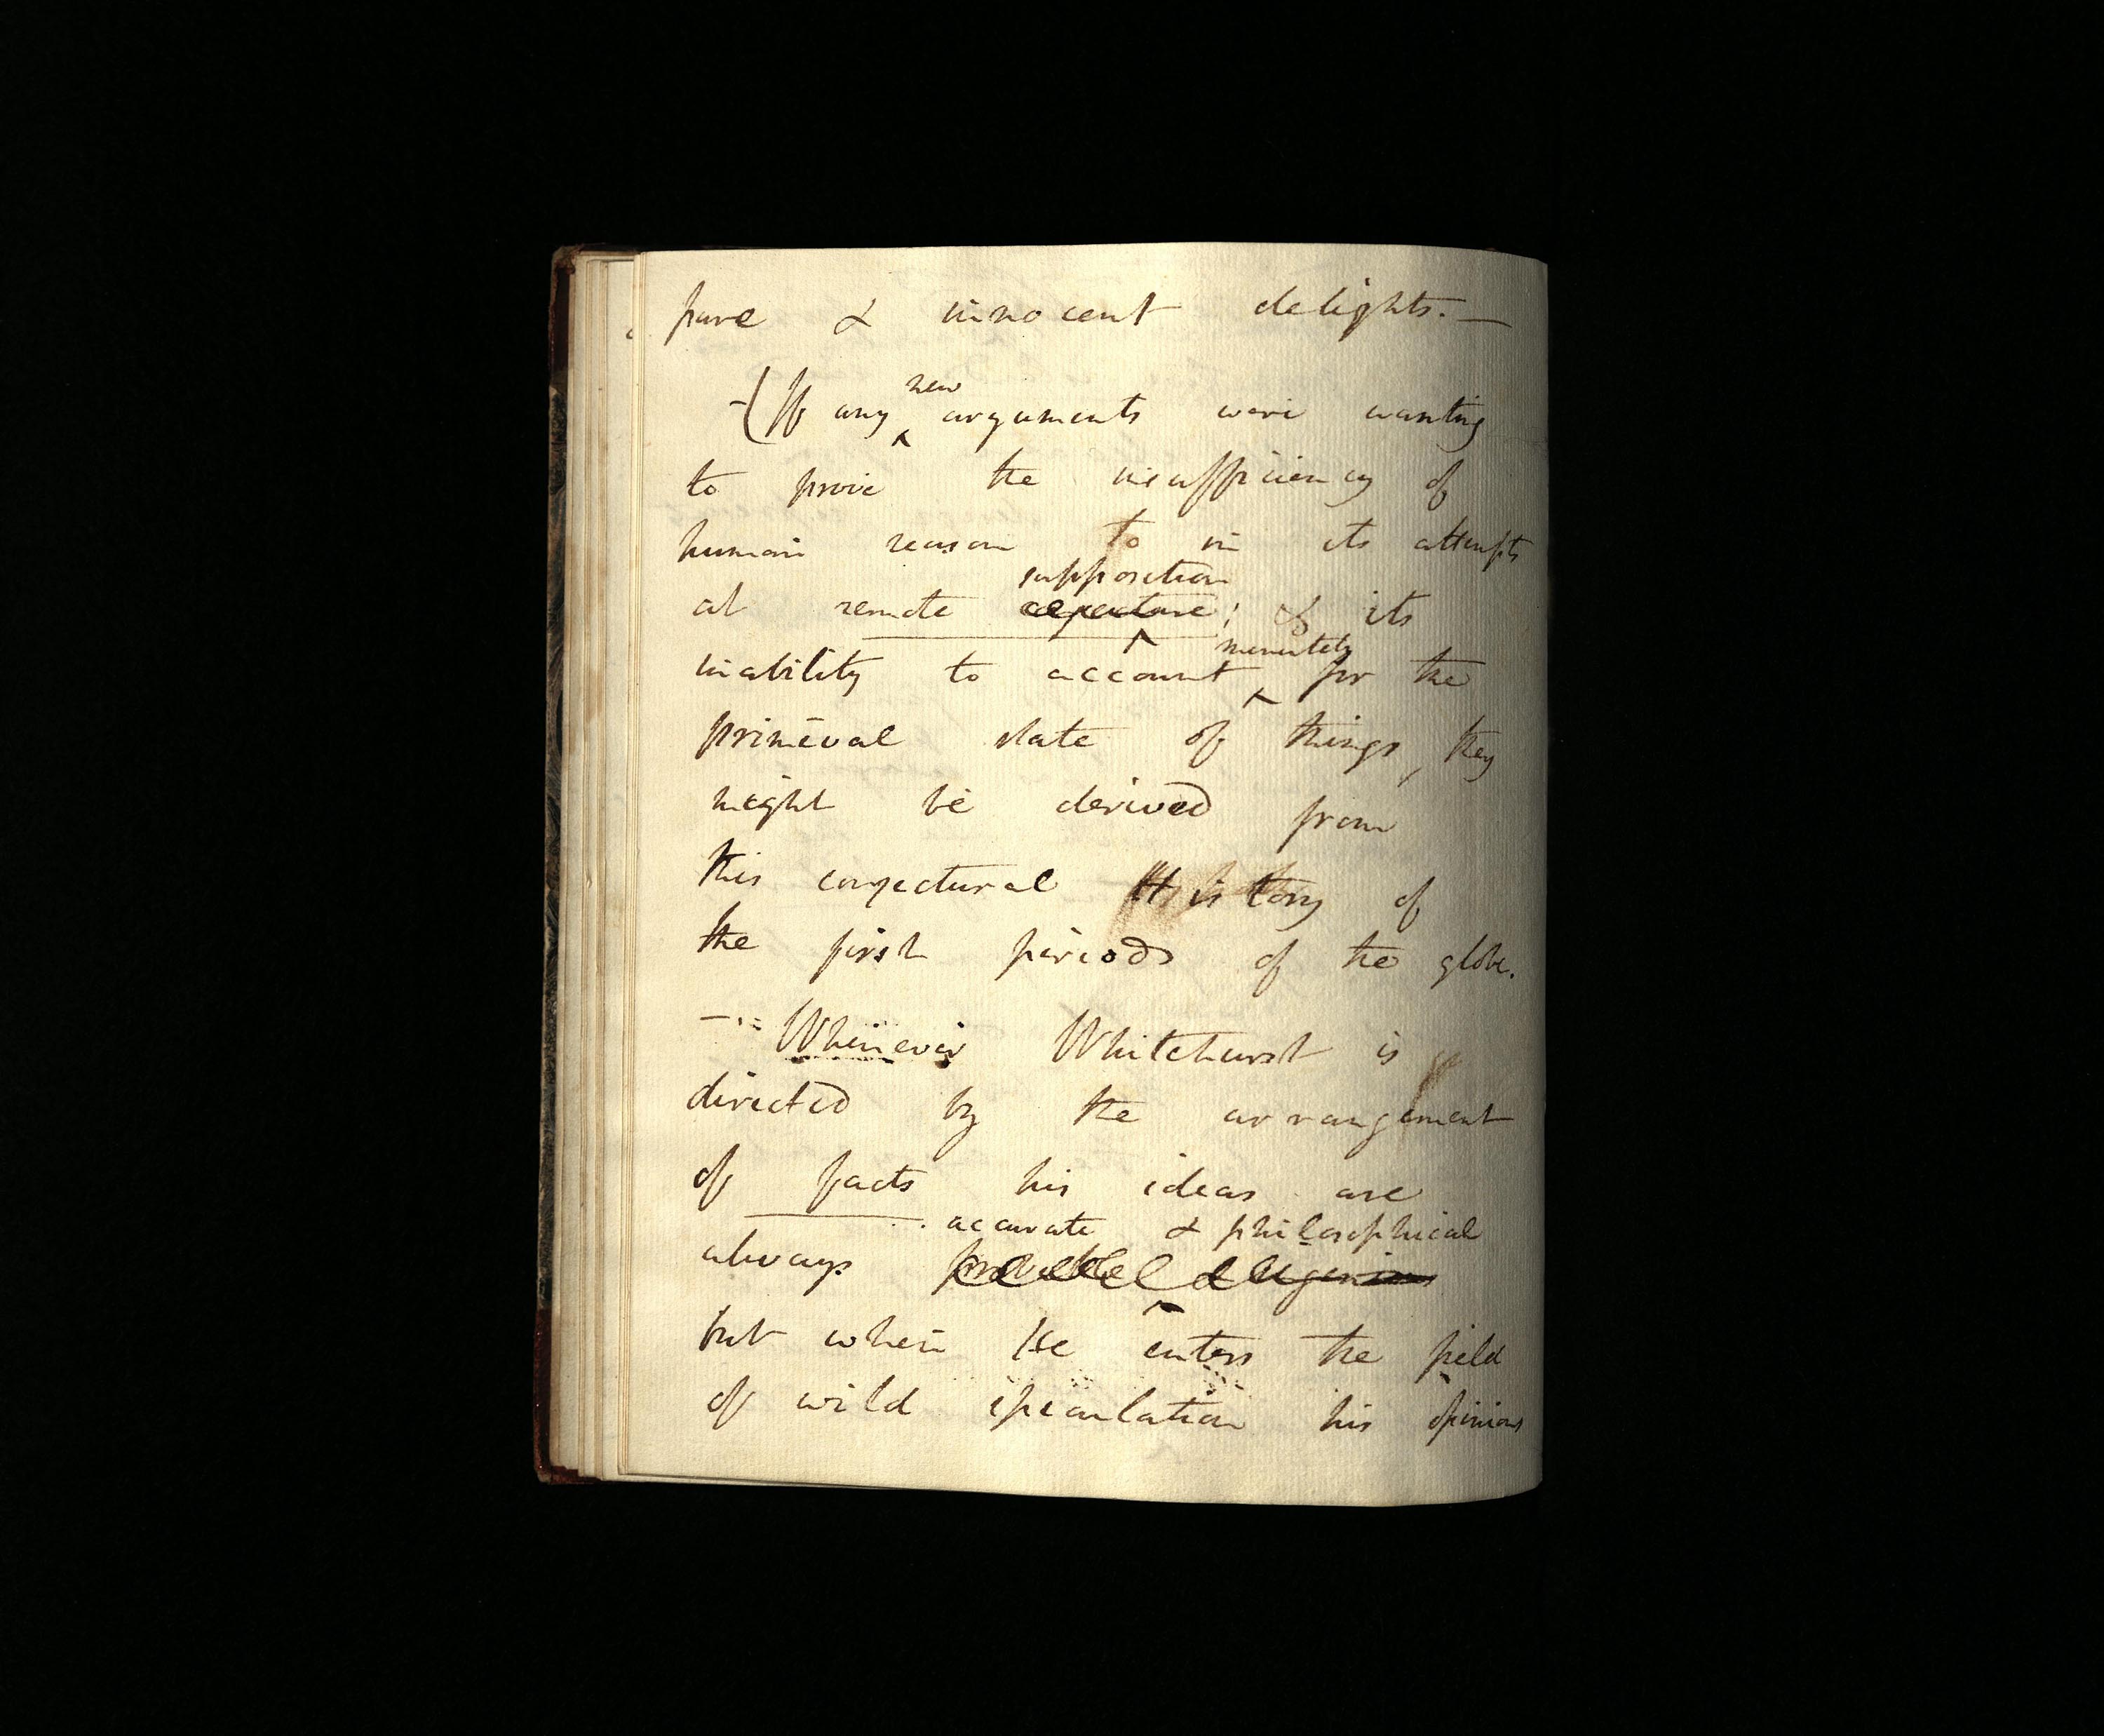 pure & innocent delights. —
—(If any new arguments were wanting
to prove the insufficiency of
human reason to in its attempts
supposition
at remote ; & its
minutely
inability to account for the
primeval state of things, they
might be derived from
this conjectural History of
the first periods of the globe.
— Whenever Whitehurst is
directed by the arrangement
of facts his ideas are
accurate & philosophical
always &
but when He enters the field
of wild speculation his opinions